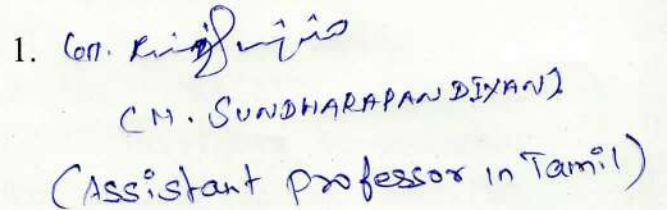 1.
(M. SUNDHARAPANDIYAN)
(Assistant Professor in Tamil)